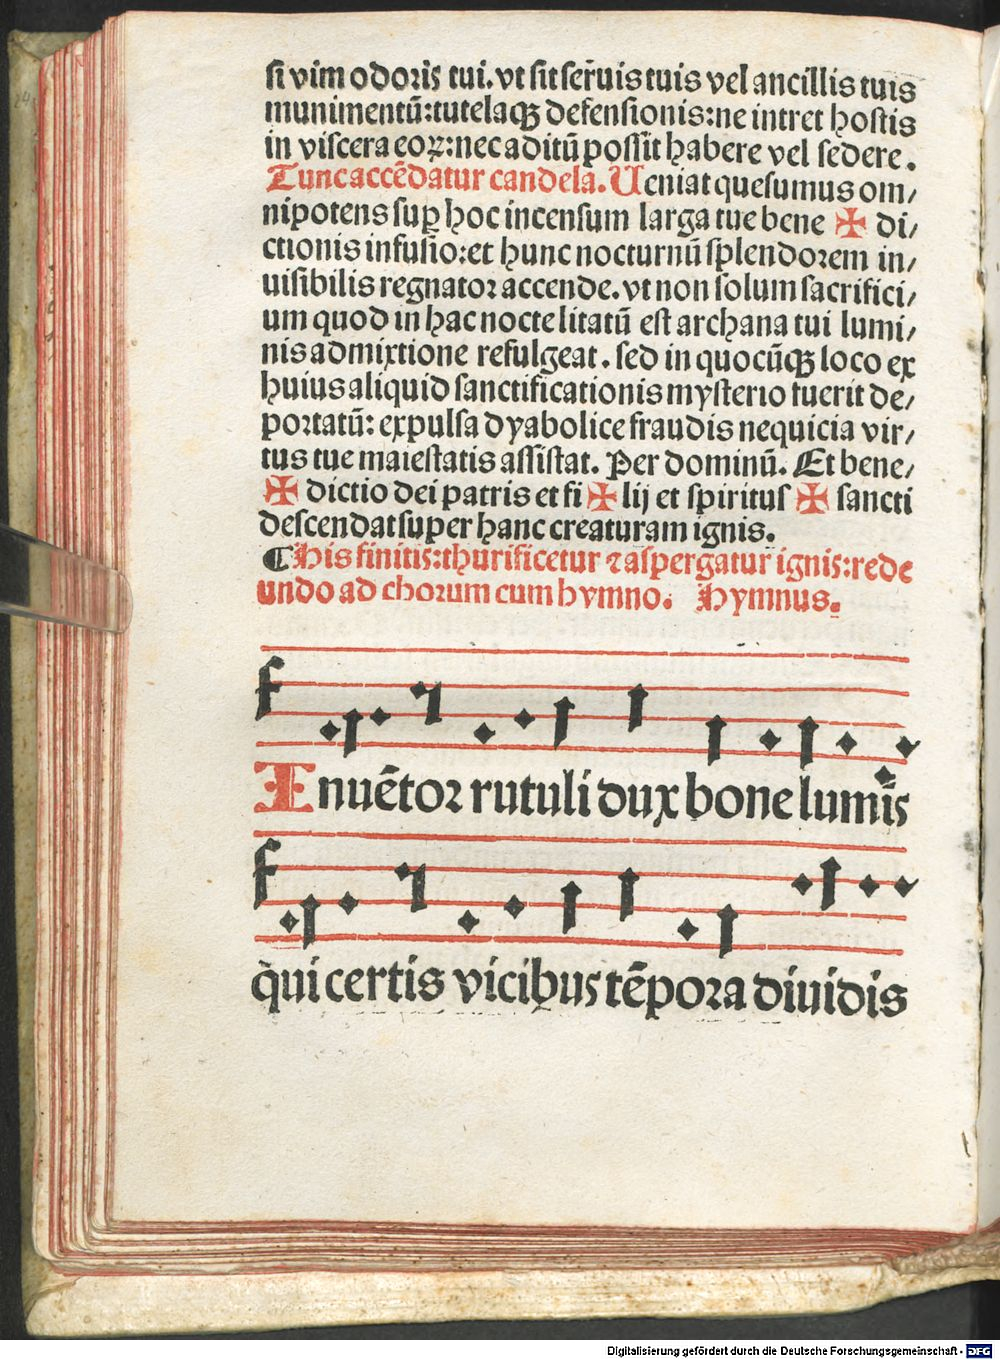 si vim odoris tui. vt sit ser̄uis tuis vel ancillis tuis
munimentū: tutelaqꝫ defensionis: ne intret hostis
in viscera eoꝝ: nec aditū possit habere vel sedere.
Tunc accēdatur candela. Ueniat quesumus om/
nipotens suꝑ hoc incensum larga tue bene ✠ di/
ctionis infusio: et hunc nocturnū splendorem in/
uisibilis regnator accende. vt non solum sacrifici/
um quod in hac nocte litatū est archana tui lumi/
nis admixtione refulgeat. sed in quocūqꝫ loco ex
huius aliquid sanctificationis mysterio fuerit de/
portatū: expulsa dyabolice fraudis nequicia vir/
tus tue maiestatis assistat. Per dominū. Et bene/
✠ dictio dei patris et fi ✠ lij et spiritus ✠ sancti
descendat super hanc creaturam ignis.
¶ His finitis: thurificetur ⁊ aspergatur ignis: rede
undo ad chorum cum hymno. Hymnus.
Inuētor rutuli dux bone lumīs
qui certis vicibus tēpora diuidis
Digitalisierung gefördert durch die Deutsche Forschungsgemeinschaft - DFG